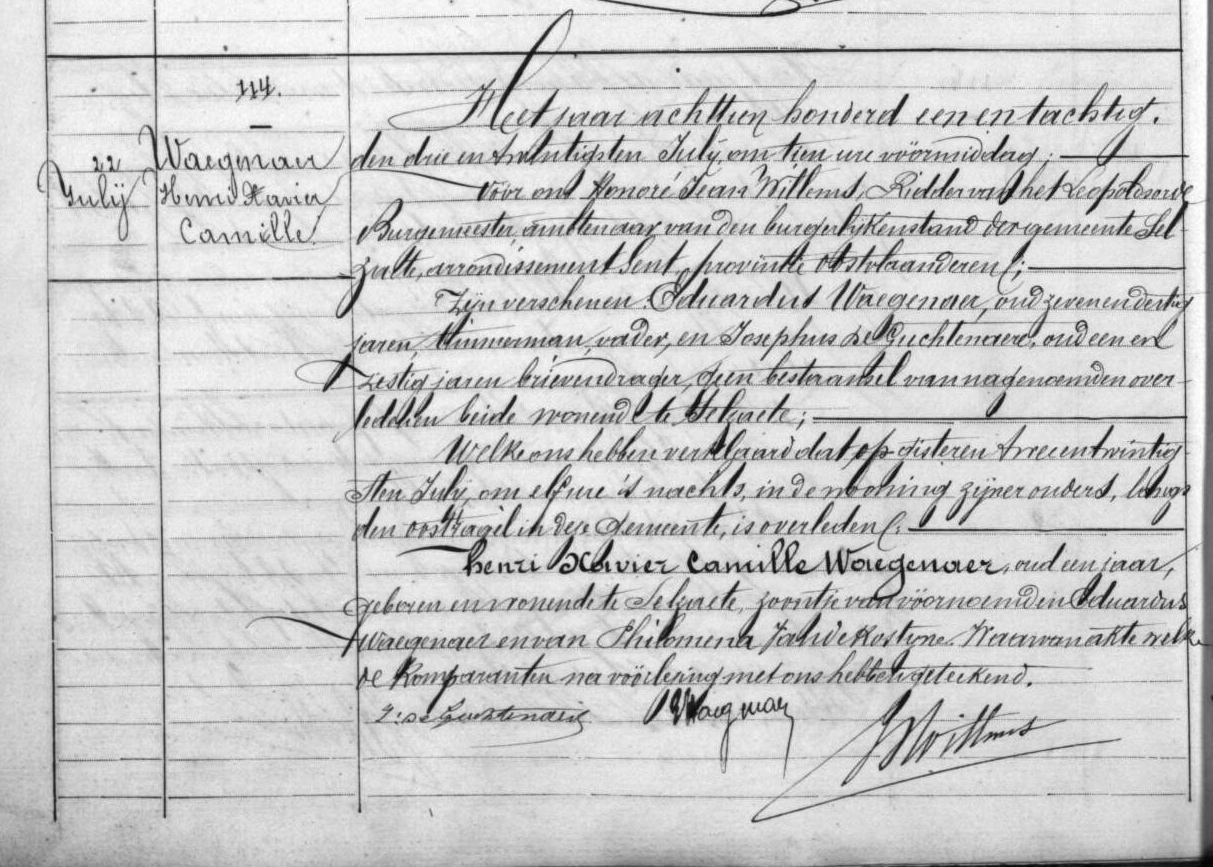 114.
22
July
Waegenaer
Henri Xavier
Camille.
Het jaar achttien honderd een en tachtig.
den drie en twintigsten July, om tien ure vöormiddag;
Vöor ons Honoré Jean Willems, Ridder van het Leopoldsorde
Burgemeester, ambtenaar van den burgerlijkenstand der gemeente Sel-
zaete, arrondissement Gent, provintie Oostvlaanderen;
Zijn verschenen: Eduardus Waegenaer, oud zeven en dertig
jaren, timmerman, vader, en Josephus De Guchtenaere, oud een en
zestig jaren brievendrager, geen bestaansel van nagenoemden over-
ledenen beide wonende te Selzaete;
Welke ons hebben verklaard dat, op gisteren twee en twintig-
sten July, om elf ure 's nachts, in de wooning zijner ouders, langs
den oostkagel in deze gemeente, is overleden:
Henri Xavier Camille Waegenaer, oud een jaar,
geboren en wonende te Selzaete, zoontje van vöornoemden Eduardus
Waegenaer en van Philomena Vande Kostyne. Waarvan akte welke
de komparanten na vöorlezing met ons hebben geteekend.
J: De Guchtenaere
E Waegenaer
HJWillems